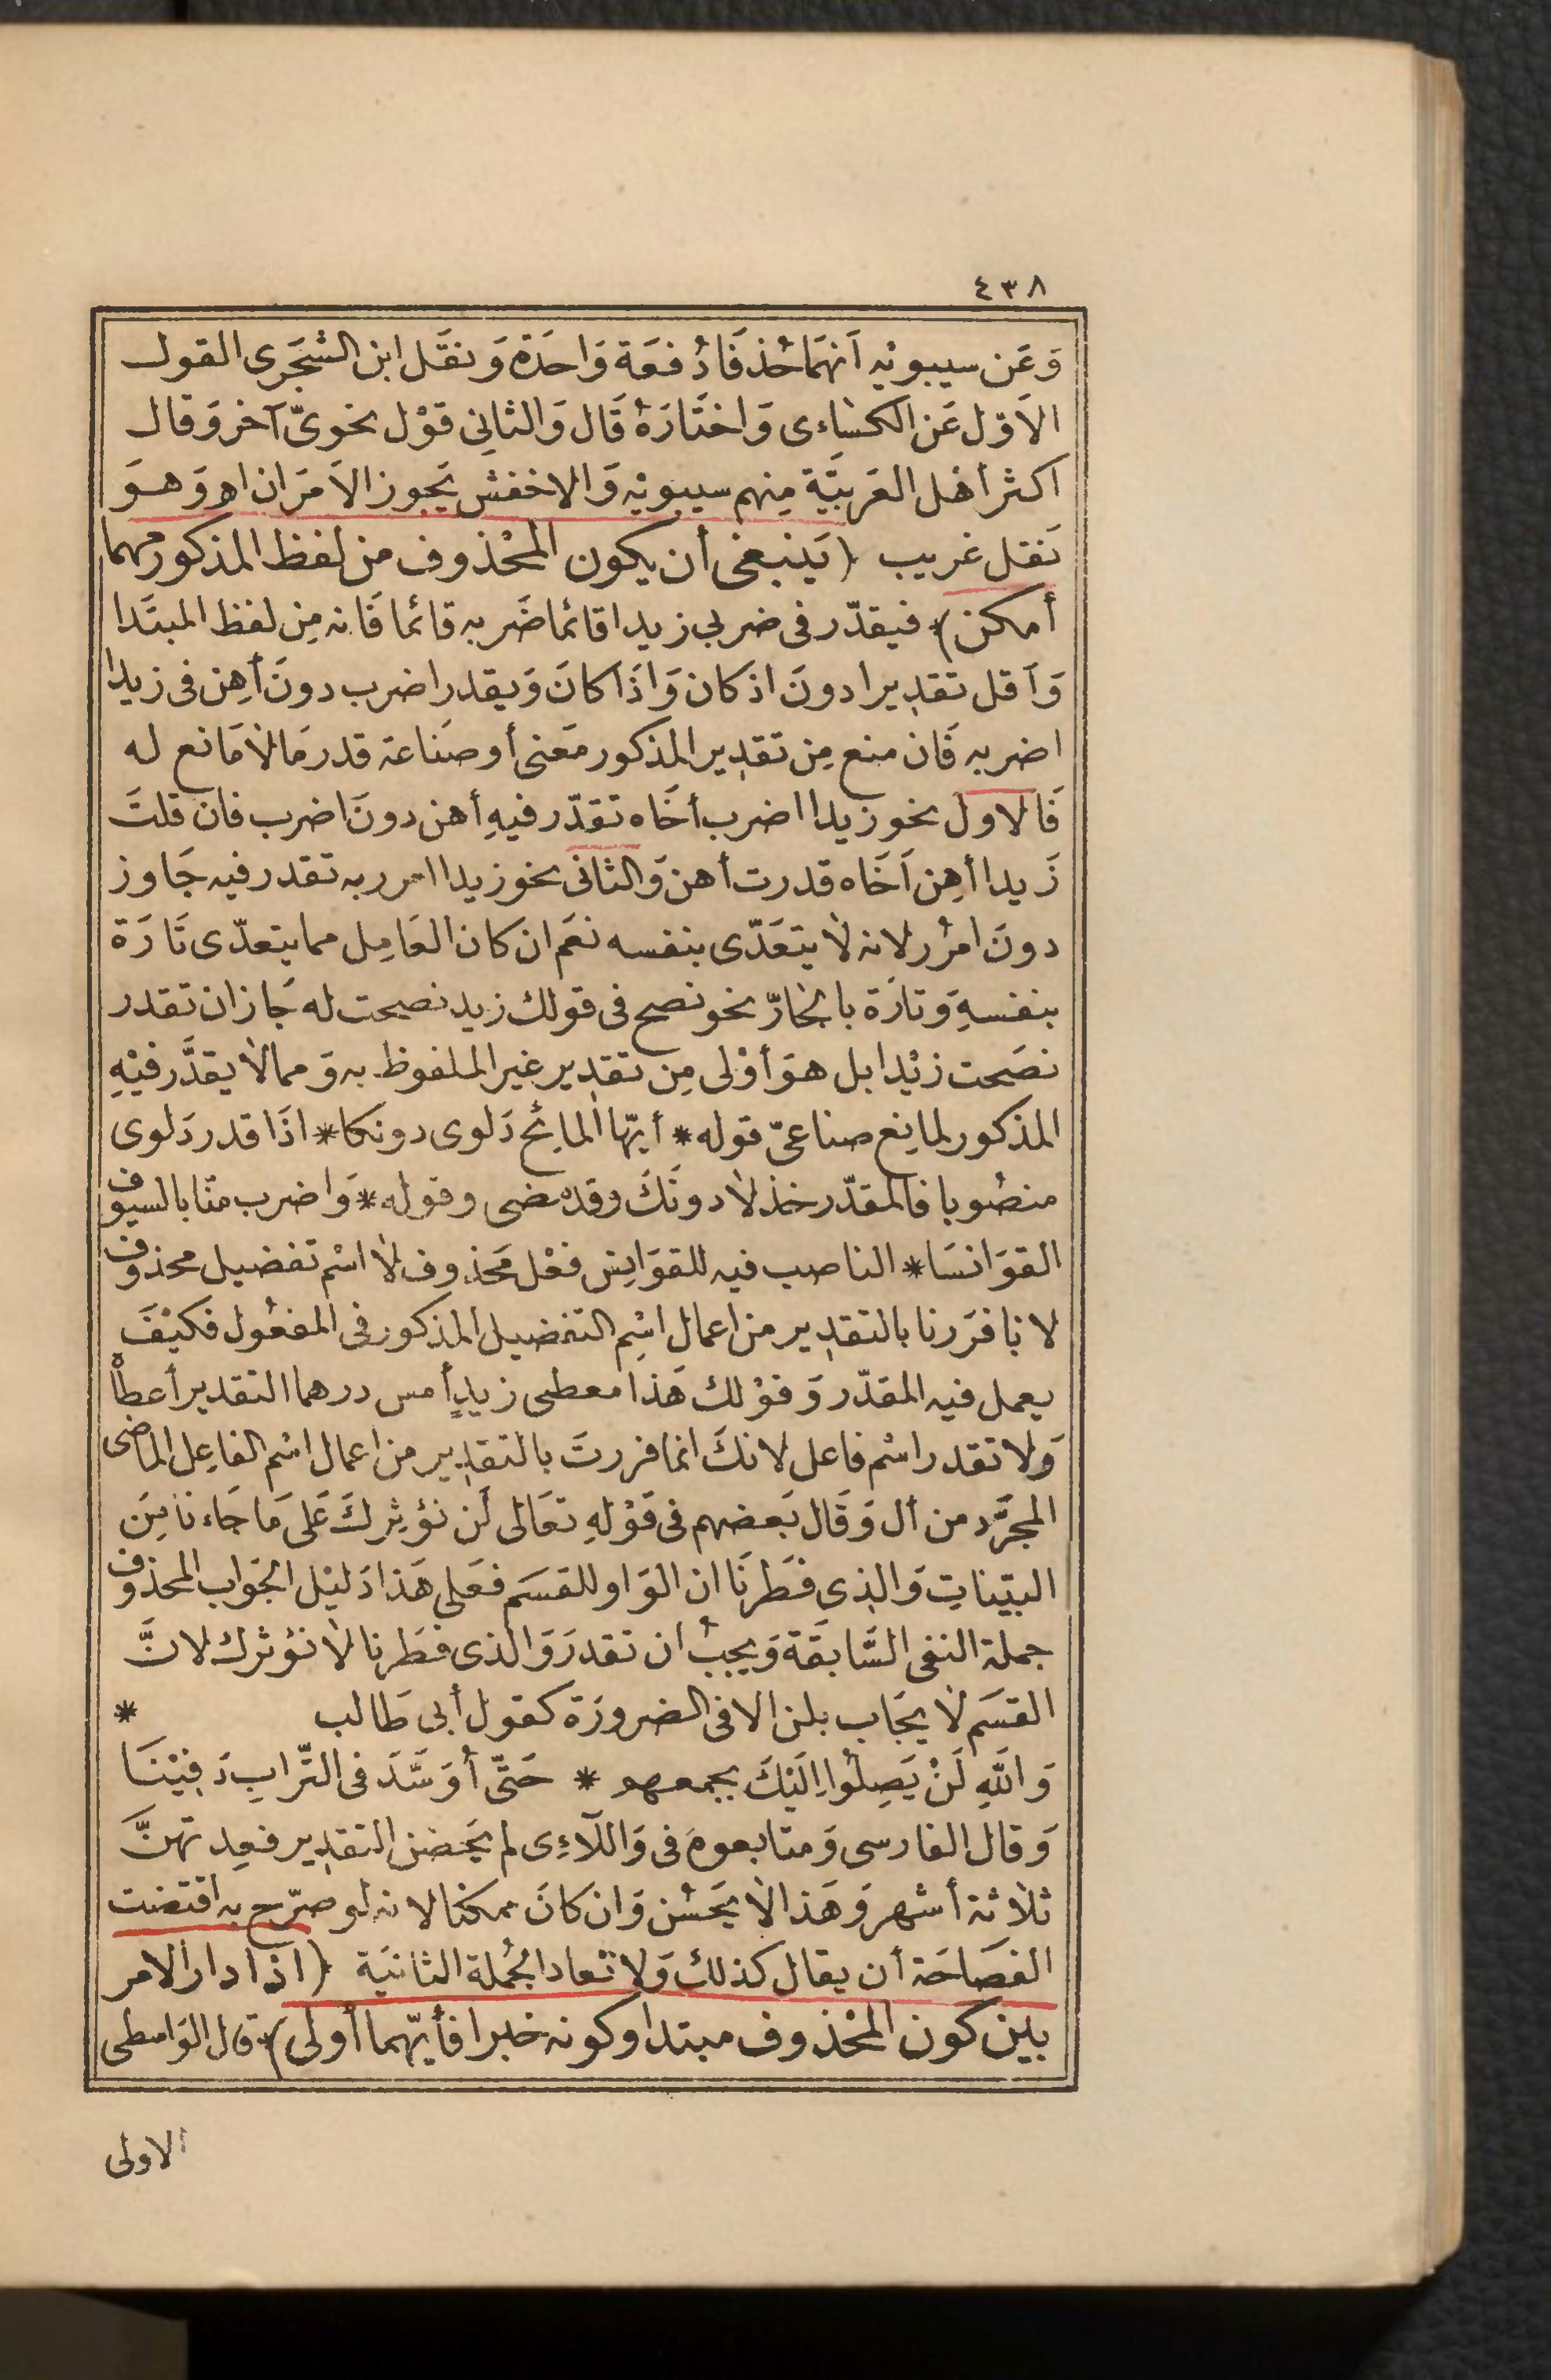 ٤٣٨
وَعَن سيبويْه اَنهمَا حُذفَا دُفعَة وَاحدَة وَنقَل ابن الشجَرى القول
الاَوّل عَن الكسَاءى وَاختَارَهُ قَال وَالثانِى قوْل نحوىّ آخر وَقال
اكثر أهْل العَربيَّة مِنهم سيبويْه وَالاخفش يَجوز الاَمرَان اه وَهوَ
نَقل غريب ﴿يَنبغى أن يكون المحْذوف من لفظ المذكور مهما
أمكن﴾ فيقدّر فى ضربى زيدا قائما ضَربه قائما فَانه مِن لفظ المبتَدا
وَاَقل تقديرا دونَ اذ كان وَاذَا كانَ وَيقدر اضرب دونَ أهِن فى زيدا
اضربه فَان منع مِن تقدير المذكور مَعنى أو صنَاعة قدر مَا لاَ مَانع له
فَالاول نحو زيدا اضرب أخَاه تقدّر فيهِ أهن دونَ اضرب فان قلتَ
زَيدا أهِن اَخَاه قدرت أهن وَالثانى نحو زيدا امرر به تقدر فيه جَاوز
دونَ امرُر لانه لاَ يتعَدّى بنفسه نعَم ان كان العَامِل مما يتعدّى تَارَة
بنفسهِ وَتارَة بالجَارّ نحو نصح فى قولك زيد نصحت له جَاز ان تقدر
نصَحت زيْدا بل هوَ أوْلى مِن تقدِير غير الملفوظ به وَمما لاَ يقدَّر فيْهِ
المذكور لمانِع صناعىّ قوله * أيّها المايُح دَلوى دونكا * اذَا قدر دَلوى
منصُوبا فالمقدّر خذ لاَ دونَكَ وقد مضى وقوله * وَاضرب منّا بالسيوف
القوَانسَا * الناصب فيه للقوَانِس فعْل مَحذوف لاَ اسْم تفضيل محذوف
لانا فرَرنا بالتقدِير من اعمال اسْمِ التفضيل المذكور فى المفعُول فكيْفَ
يعمل فيه المقدّر وَقوْلك هَذا معطى زيدٍ أمس درهما التقدير أعطاْه
وَلا تقدر اسْم فاعل لانكَ انما فررتَ بالتقدِير من اعمال اسْم الفاعِل الماضى
المجرَّد من أل وَقَال بَعضهم فى قَوْلهِ تعَالى لَن نؤثِركَ عَلى مَا جَاءنا مِنَ
البيّناتِ وَالذِى فطَرنَا ان الوَاو للقسَم فعَلى هَذا دَليْل الجَواب المحذوف
جملة النفى السَّابقَة وَيجبُ ان تقدرَ وَالذى فطَرنا لاَ نؤثرك لانَّ
القسَم لاَ يجَاب بلن الا فى الضرورَة كقول أبى طَالب *
وَاللّهِ لَنْ يَصِلُوا اِلَيْكَ بجمعهم * حَتّى أُوَسَّدَ فى التّرابِ دَفِيْنَا
وَقال الفارسى وَمتابعوهَ فى وَاللّاَءِى لم يَحضن التقدِير فعِدتهنَّ
ثلاَثة أشهر وَهَذا لاَ يحَسُن وَان كانَ ممكنا لانه لو صرّح به اقتضت
الفصَاحَة أن يقال كذلك وَلا تعاد الجُملة الثانيَة ﴿اذا دار الامر
بين كون المحْذوف مبتدا وكونه خبرا فأيّهما أولى﴾ قال الوَاسطى
الاولى